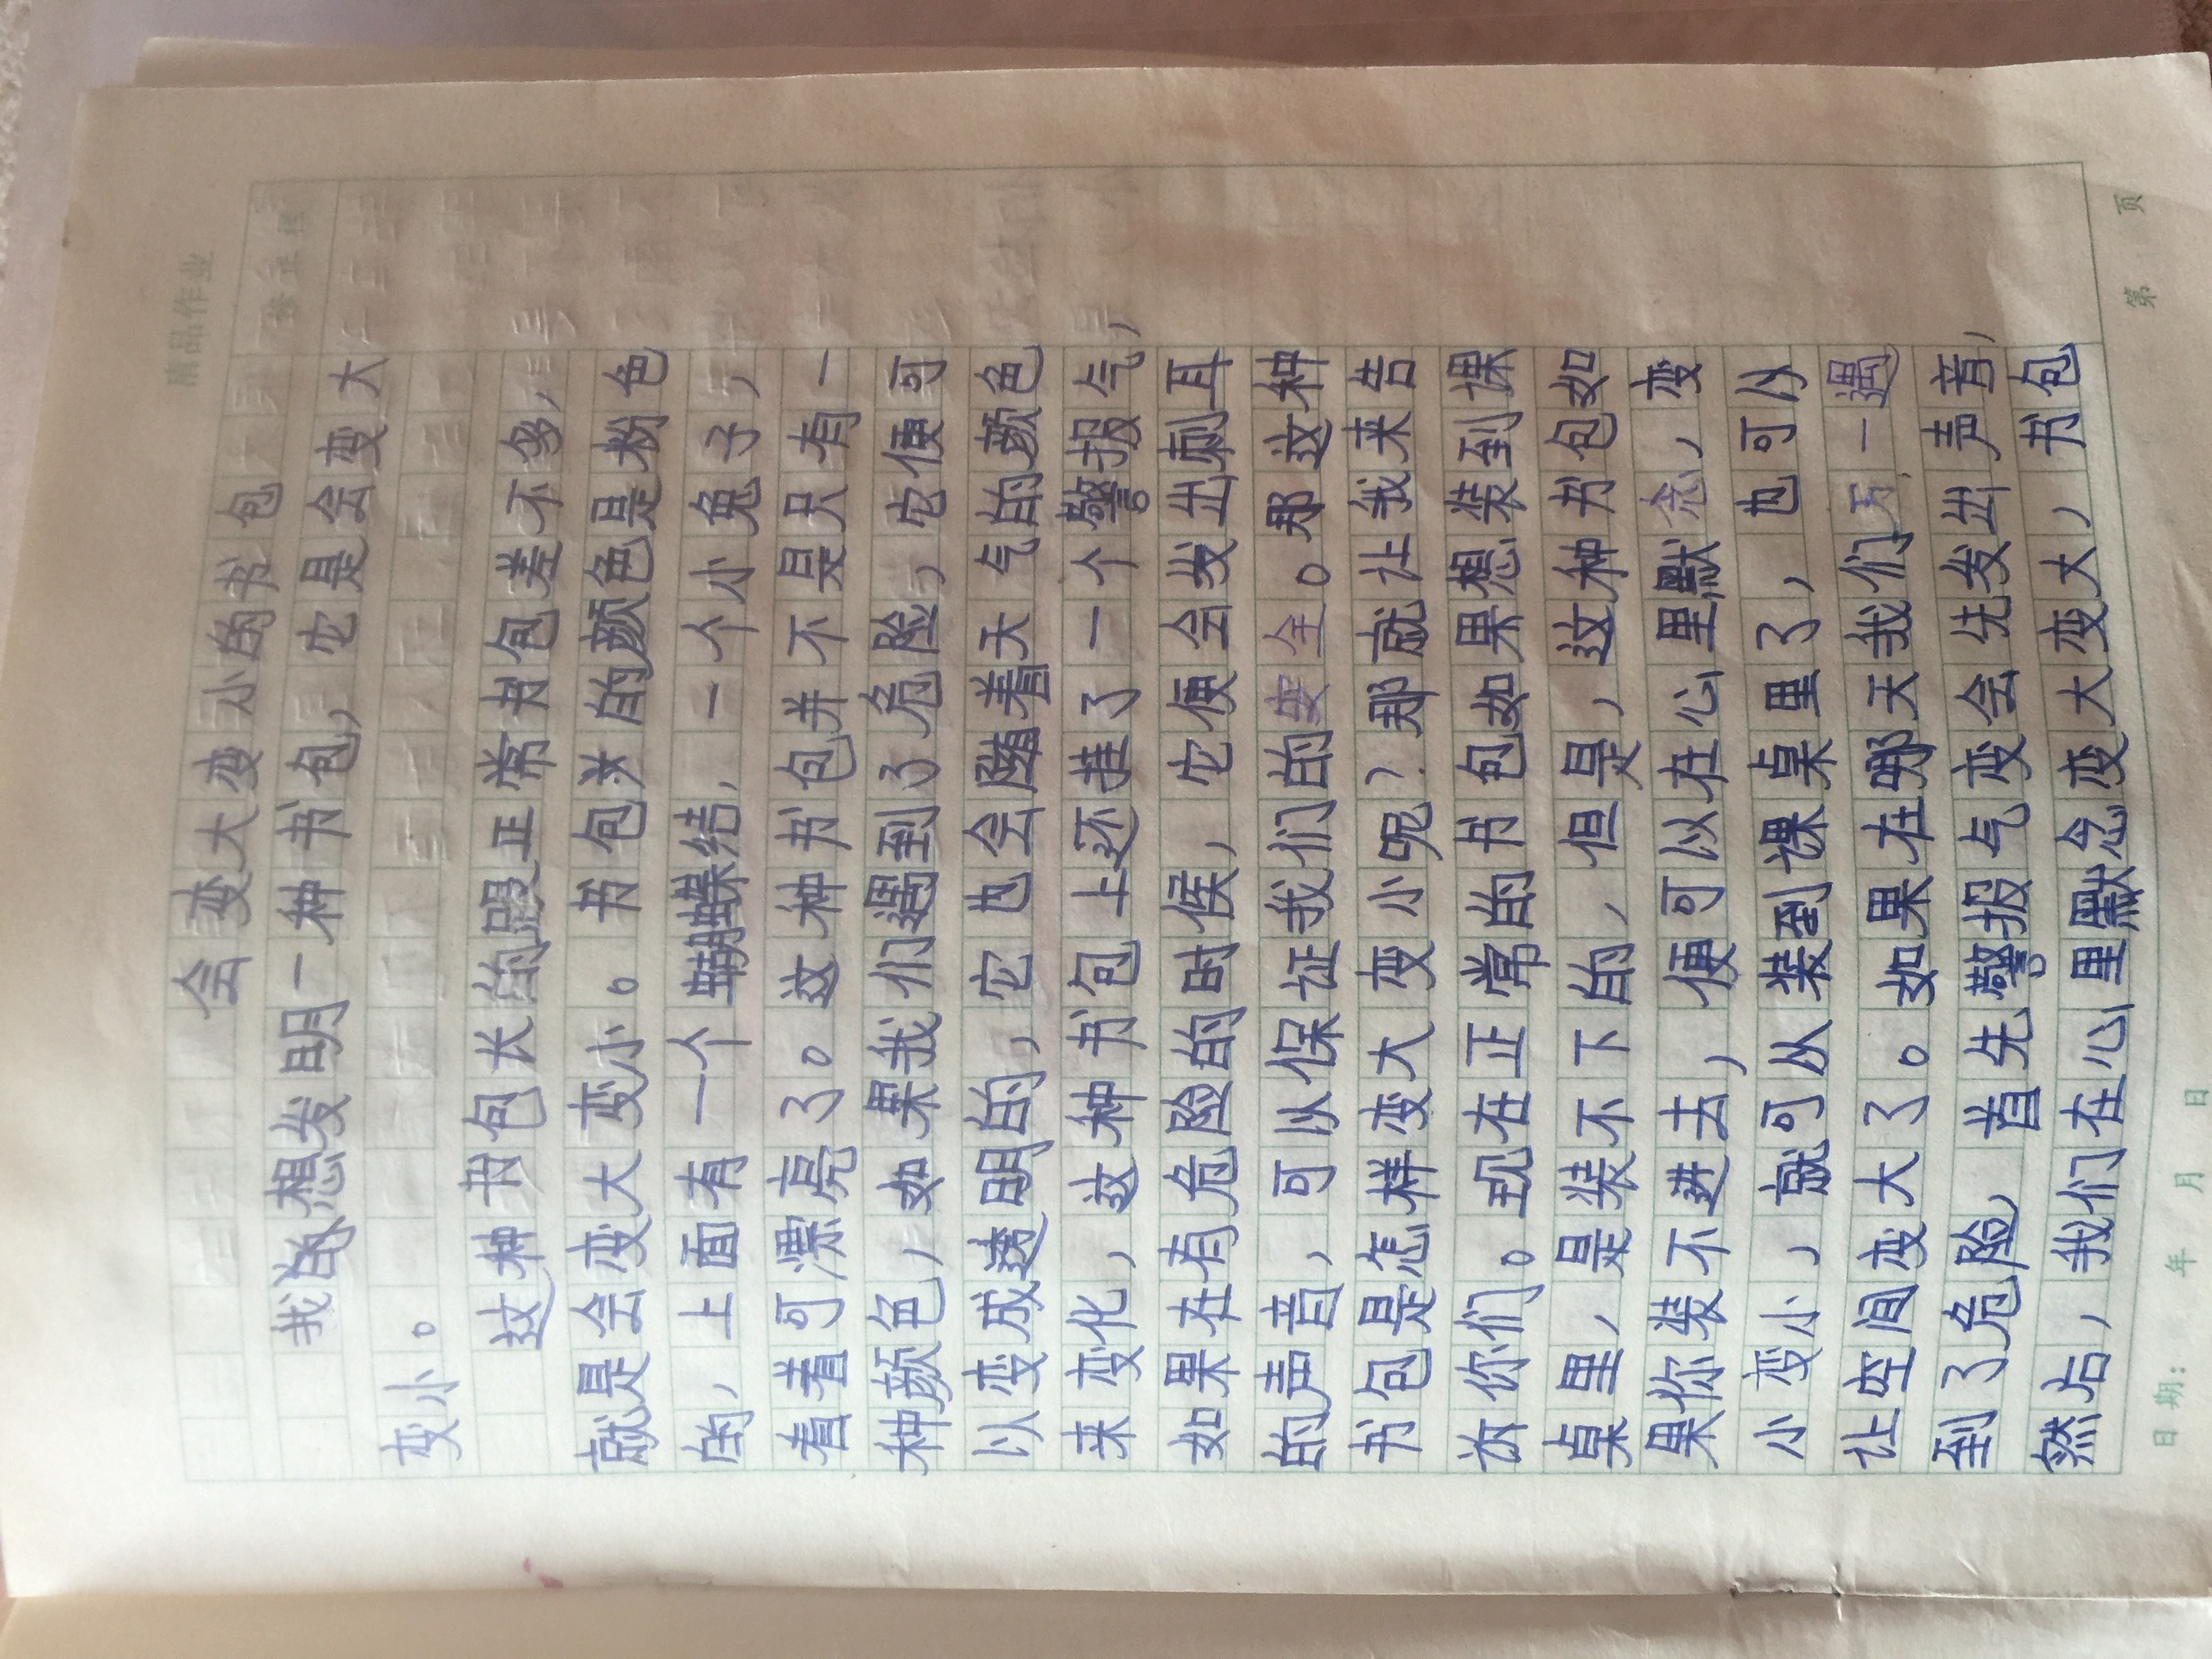 精品作业
会变大变小的书包
我的想发明一种书包，它是会变大
变小。
这种书包长的跟正常书包差不多，
就是会变大变小。书包的颜色是粉色
的，上面有一个蝴蝶结，一个小兔子，
看着可漂亮了。这种书包并不是只有一
种颜色，如果我们遇到了危险，它便可
以变成透明的，它也会随着天气的颜色
来变化，这种书包上还挂了一个警报气，
如果在有危险的时候，它便会发出刺耳
的声音，可以保证我们的安全。那这种
书包是怎样变大变小呢？那就让我来告
诉你们。现在正常的书包如果想装到课
桌里，是装不下的，但是，这种书包如
果你装不进去，便可以在心里默念，变
小变小，就可从装到课桌里了，也可以
让空间变大了。如果在哪天我们万一遇
到了危险，首先警报气变会先发出声音，
然后，我们在心里默念变大变大，书包
日期： 年 月 日
第 页